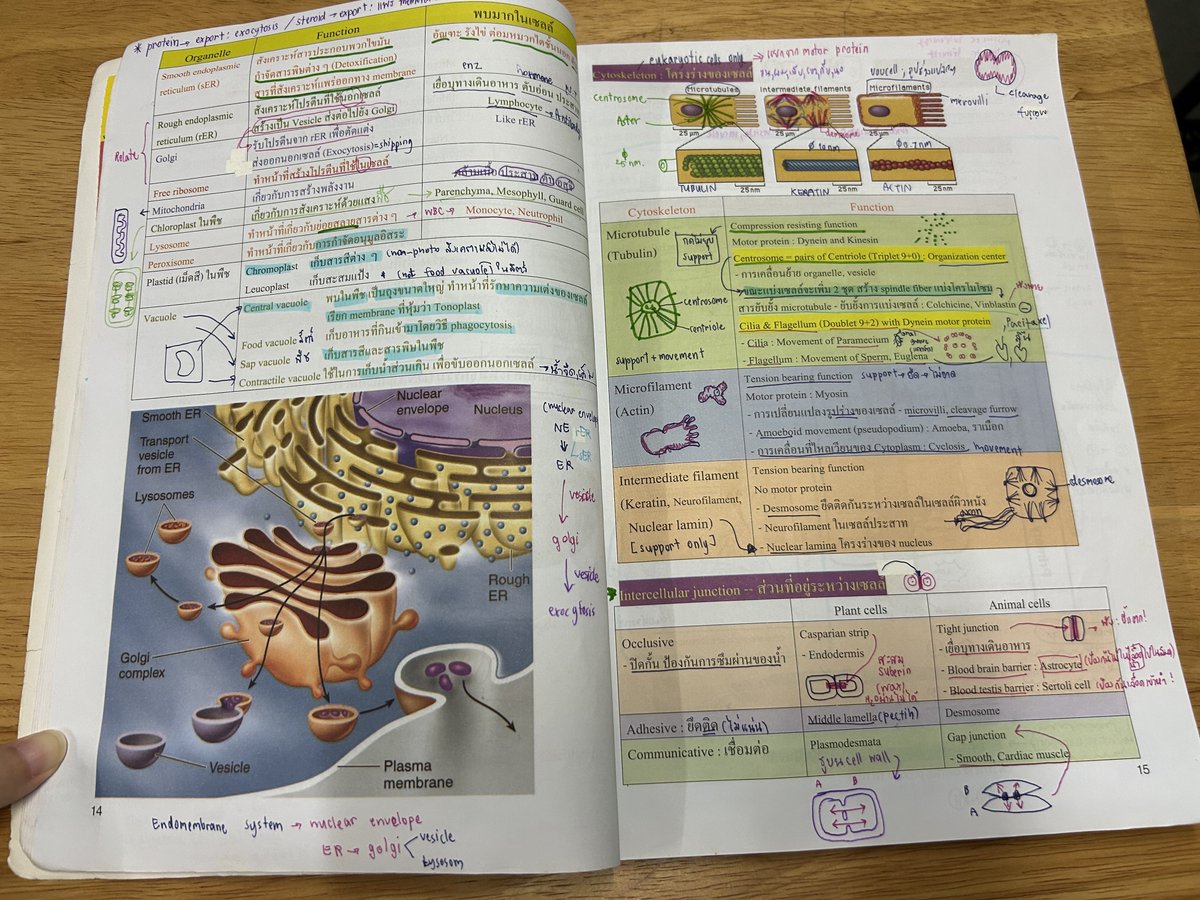 * protein → export : exocytosis / steroid → export : แพร่
Organelle
Function
พบมากในเซลล์
Smooth endoplasmic reticulum (sER)
สังเคราะห์สารประกอบพวกไขมัน
กำจัดสารพิษต่าง ๆ (Detoxification)
สารที่สังเคราะห์แพร่ออกทาง membrane
อัณฑะ รังไข่ ต่อมหมวกไตชั้นนอก
Rough endoplasmic reticulum (rER)
สังเคราะห์โปรตีนที่ใช้นอกเซลล์
สร้างเป็น Vesicle ส่งต่อไปยัง Golgi
เยื่อบุทางเดินอาหาร ตับอ่อน
Lymphocyte →
Relate
Golgi
รับโปรตีนจาก rER เพื่อตัดแต่ง
ส่งออกนอกเซลล์ (Exocytosis) = shipping
Like rER
Free ribosome
ทำหน้าที่สร้างโปรตีนที่ใช้ในเซลล์
Mitochondria
เกี่ยวกับการสร้างพลังงาน
Chloroplast ในพืช
เกี่ยวกับการสังเคราะห์ด้วยแสง
Parenchyma, Mesophyll, Guard cell
Lysosome
ทำหน้าที่เกี่ยวกับย่อยสลายสารต่าง ๆ → WBC → Monocyte, Neutrophil
Peroxisome
ทำหน้าที่เกี่ยวกับการกำจัดอนุมูลอิสระ
Plastid (เม็ดสี) ในพืช
Chromoplast เก็บสารสีต่าง ๆ
Leucoplast เก็บสะสมแป้ง
Vacuole
Central vacuole พบในพืช เป็นถุงขนาดใหญ่ ทำหน้าที่รักษาความเต่งของเซลล์
เรียก membrane ที่หุ้มว่า Tonoplast
Food vacuole เก็บอาหารที่กินเข้ามาโดยวิธี phagocytosis
Sap vacuole พืช เก็บสารสีและสารพิษในพืช
Contractile vacuole ใช้ในการเก็บน้ำส่วนเกิน เพื่อขับออกนอกเซลล์
Smooth ER
Nuclear envelope
Nucleus
Transport vesicle from ER
Lysosomes
Rough ER
Golgi complex
Vesicle
Plasma membrane
(nuclear envelope
NE
rER
sER
ER
vesicle
golgi
vesicle
exocytosis
14
Endomembrane system → nuclear envelope
ER → golgi
vesicle
lysosom
eukaryotic cells only
Cytoskeleton : โครงร่างของเซลล์
Microtubules
Intermediate filaments
Microfilaments
Centrosome
Aster
microvilli
cleavage furrow
25 µm
25 µm
25 µm
25 nm.
TUBULIN
25nm
KERATIN
25nm
ACTIN
25nm
Cytoskeleton
Function
Microtubule
(Tubulin)
Compression resisting function
Motor protein : Dynein and Kinesin
Centrosome = pairs of Centriole (Triplet 9+0) : Organization center
- การเคลื่อนย้าย organelle, vesicle
ขณะแบ่งเซลล์จะเพิ่ม 2 ชุด สร้าง spindle fiber แบ่งโครโมโซม
สารยับยั้ง microtubule - ยับยั้งการแบ่งเซลล์ : Colchicine, Vinblastin
Cilia & Flagellum (Doublet 9+2) with Dynein motor protein
- Cilia : Movement of Paramecium
- Flagellum : Movement of Sperm, Euglena
support
centrosome
centriole
support + movement
Microfilament
(Actin)
Tension bearing function
Motor protein : Myosin
- การเปลี่ยนแปลงรูปร่างของเซลล์ - microvilli, cleavage furrow
- Amoeboid movement (pseudopodium) : Amoeba, ราเมือก
- การเคลื่อนที่ไหลเวียนของ Cytoplasm : Cyclosis movement
Intermediate filament
(Keratin, Neurofilament,
Nuclear lamin)
[support only]
Tension bearing function
No motor protein
- Desmosome ยึดติดกันระหว่างเซลล์ในเซลล์ผิวหนัง
- Neurofilament ในเซลล์ประสาท
- Nuclear lamina โครงร่างของ nucleus
desmosome
axon
Intercellular junction -- ส่วนที่อยู่ระหว่างเซลล์
Plant cells
Animal cells
Occlusive
- ปิดกั้น ป้องกันการซึมผ่านของน้ำ
Casparian strip
- Endodermis
สะสม suberin
Tight junction
- เยื่อบุทางเดินอาหาร
- Blood brain barrier : Astrocyte
- Blood testis barrier : Sertoli cell
Adhesive : ยึดติด (ไม่แน่น)
Middle lamella (pectin)
Desmosome
Communicative : เชื่อมต่อ
Plasmodesmata
รูบน cell wall
Gap junction
- Smooth, Cardiac muscle
A B
B
A
15